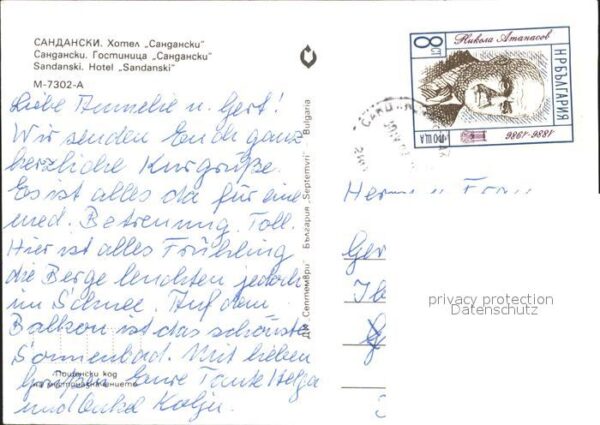 САНДАНСКИ. Хотел „Сандански“
Сандански. Гостиница „Сандански“
Sandanski. Hotel „Sandanski“
М-7302-А
Liebe Annelie u. Gert!
Wir senden Euch ganz
herzliche Kurgrüße.
Es ist alles da für eine
med. Betreuung. Toll.
Hier ist alles Frühling
die Berge leuchten jedoch
im Schnee. Auf dem
Balkon ist das schönste
Sonnenbad. Mit lieben
Grüßen Eure Tante Helga
und Onkel Kolju.
Пощенски код
на местоназначението
ДИ „Септември“ България „Septemvri“ Bulgaria
8 СТ
Никола Атанасов
НР БЪЛГАРИЯ
1886-1986
ПОЩА
Herrn u. Frau
Ger
privacy protection
Datenschutz